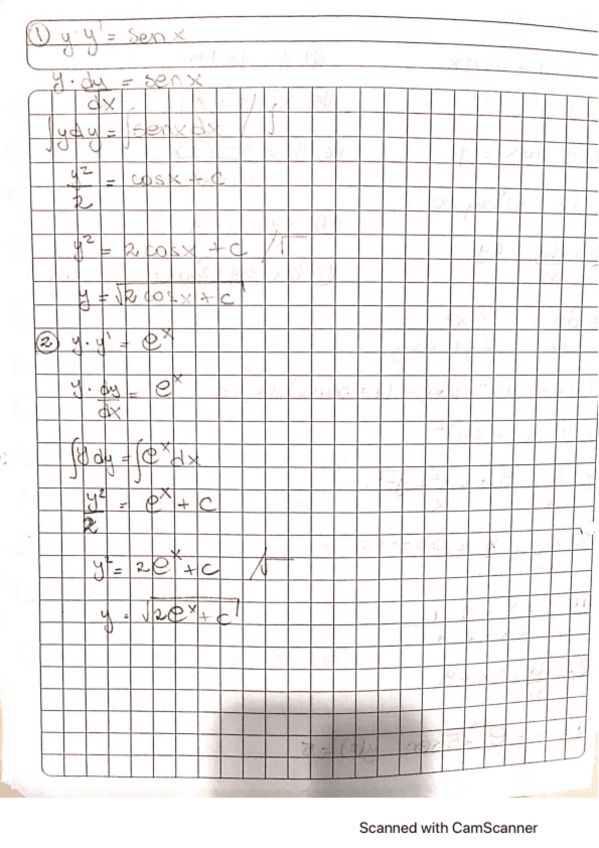 ① y·y' = senx
y · dy/dx = senx
∫ydy = ∫senxdx /∫
y²/2 = cosx + c
y² = 2cosx + c /√
y = √2cosx + c
② y·y' = eˣ
y · dy/dx = eˣ
∫y dy = ∫eˣdx
y²/2 = eˣ + c
y² = 2eˣ + c /√
y = √2eˣ + c
Scanned with CamScanner